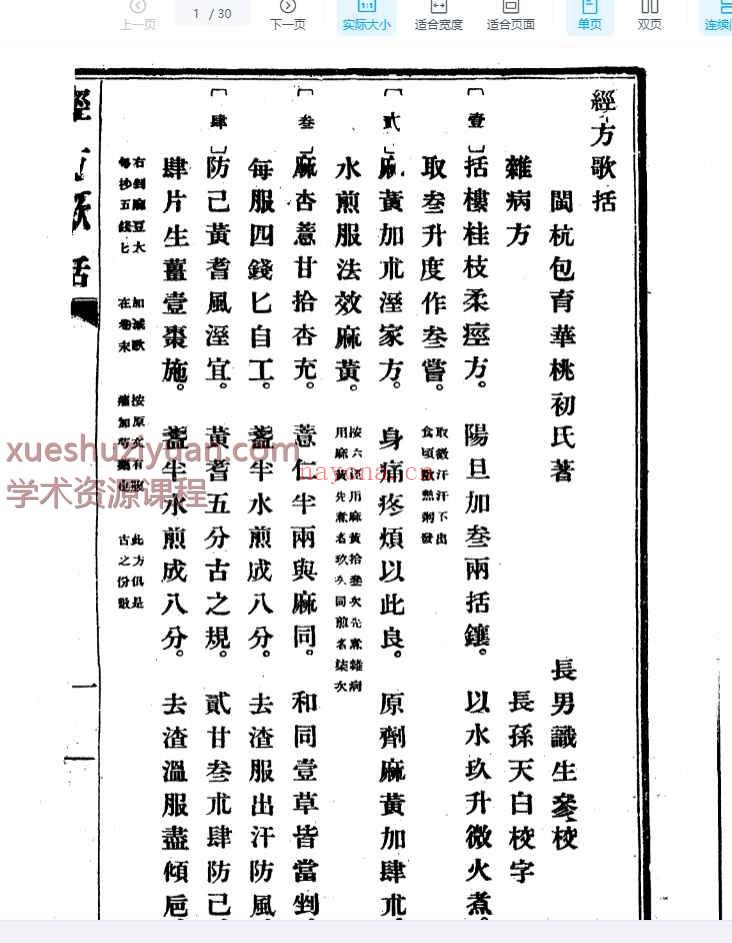 上一页
1 / 30
下一页
实际大小
适合宽度
适合页面
单页
双页
连续
經方歌括
閩杭包育華桃初氏著 長男識生參校
雜病方 長孫天白校字
〔壹〕括樓桂枝柔痙方。 陽旦加叁兩括鑲。 以水玖升微火煮。
取叁升度作叁嘗。 取微汗汗不出食頃熱粥發
〔貳〕麻黃加朮溼家方。 身痛疼煩以此良。 原劑麻黃加肆朮。
水煎服法效麻黃。
〔叁〕麻杏薏甘拾杏充。 薏仁半兩與麻同。 和同壹草皆當剉。
每服四錢匕自工。 盞半水煎成八分。 去渣服出汗防風。
〔肆〕防己黃耆風溼宜。 黃耆五分古之規。 貳甘叁朮肆防己。
肆片生薑壹棗施。 盞半水煎成八分。 去渣溫服盡傾巵。
右剉麻豆大每抄五錢匕 加減歌在卷末 此方俱是古之份數
經方歌括
一
xueshuziyuan.com
学术资源课程
nayona.cn